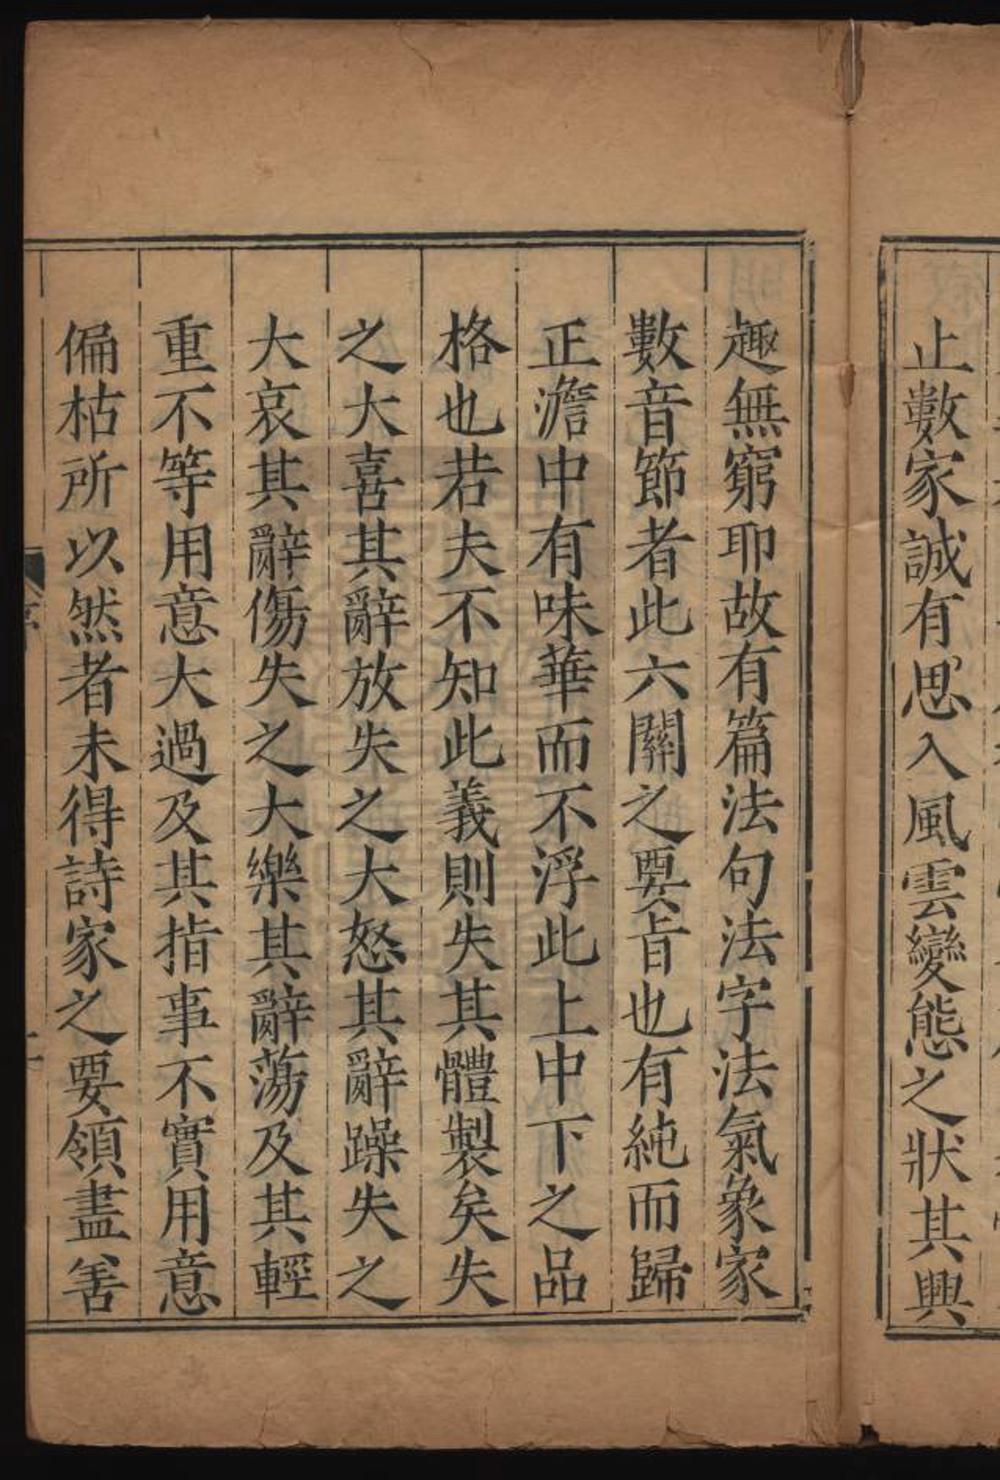 止數家誠有思入風雲變態之狀其興
趣無窮耶故有篇法句法字法氣象家
數音節者此六關之要旨也有純而歸
正澹中有味華而不浮此上中下之品
格也若夫不知此義則失其體製矣失
之大喜其辭放失之大怒其辭躁失之
大哀其辭傷失之大樂其辭蕩及其輕
重不等用意大過及其指事不實用意
偏枯所以然者未得詩家之要領盡善